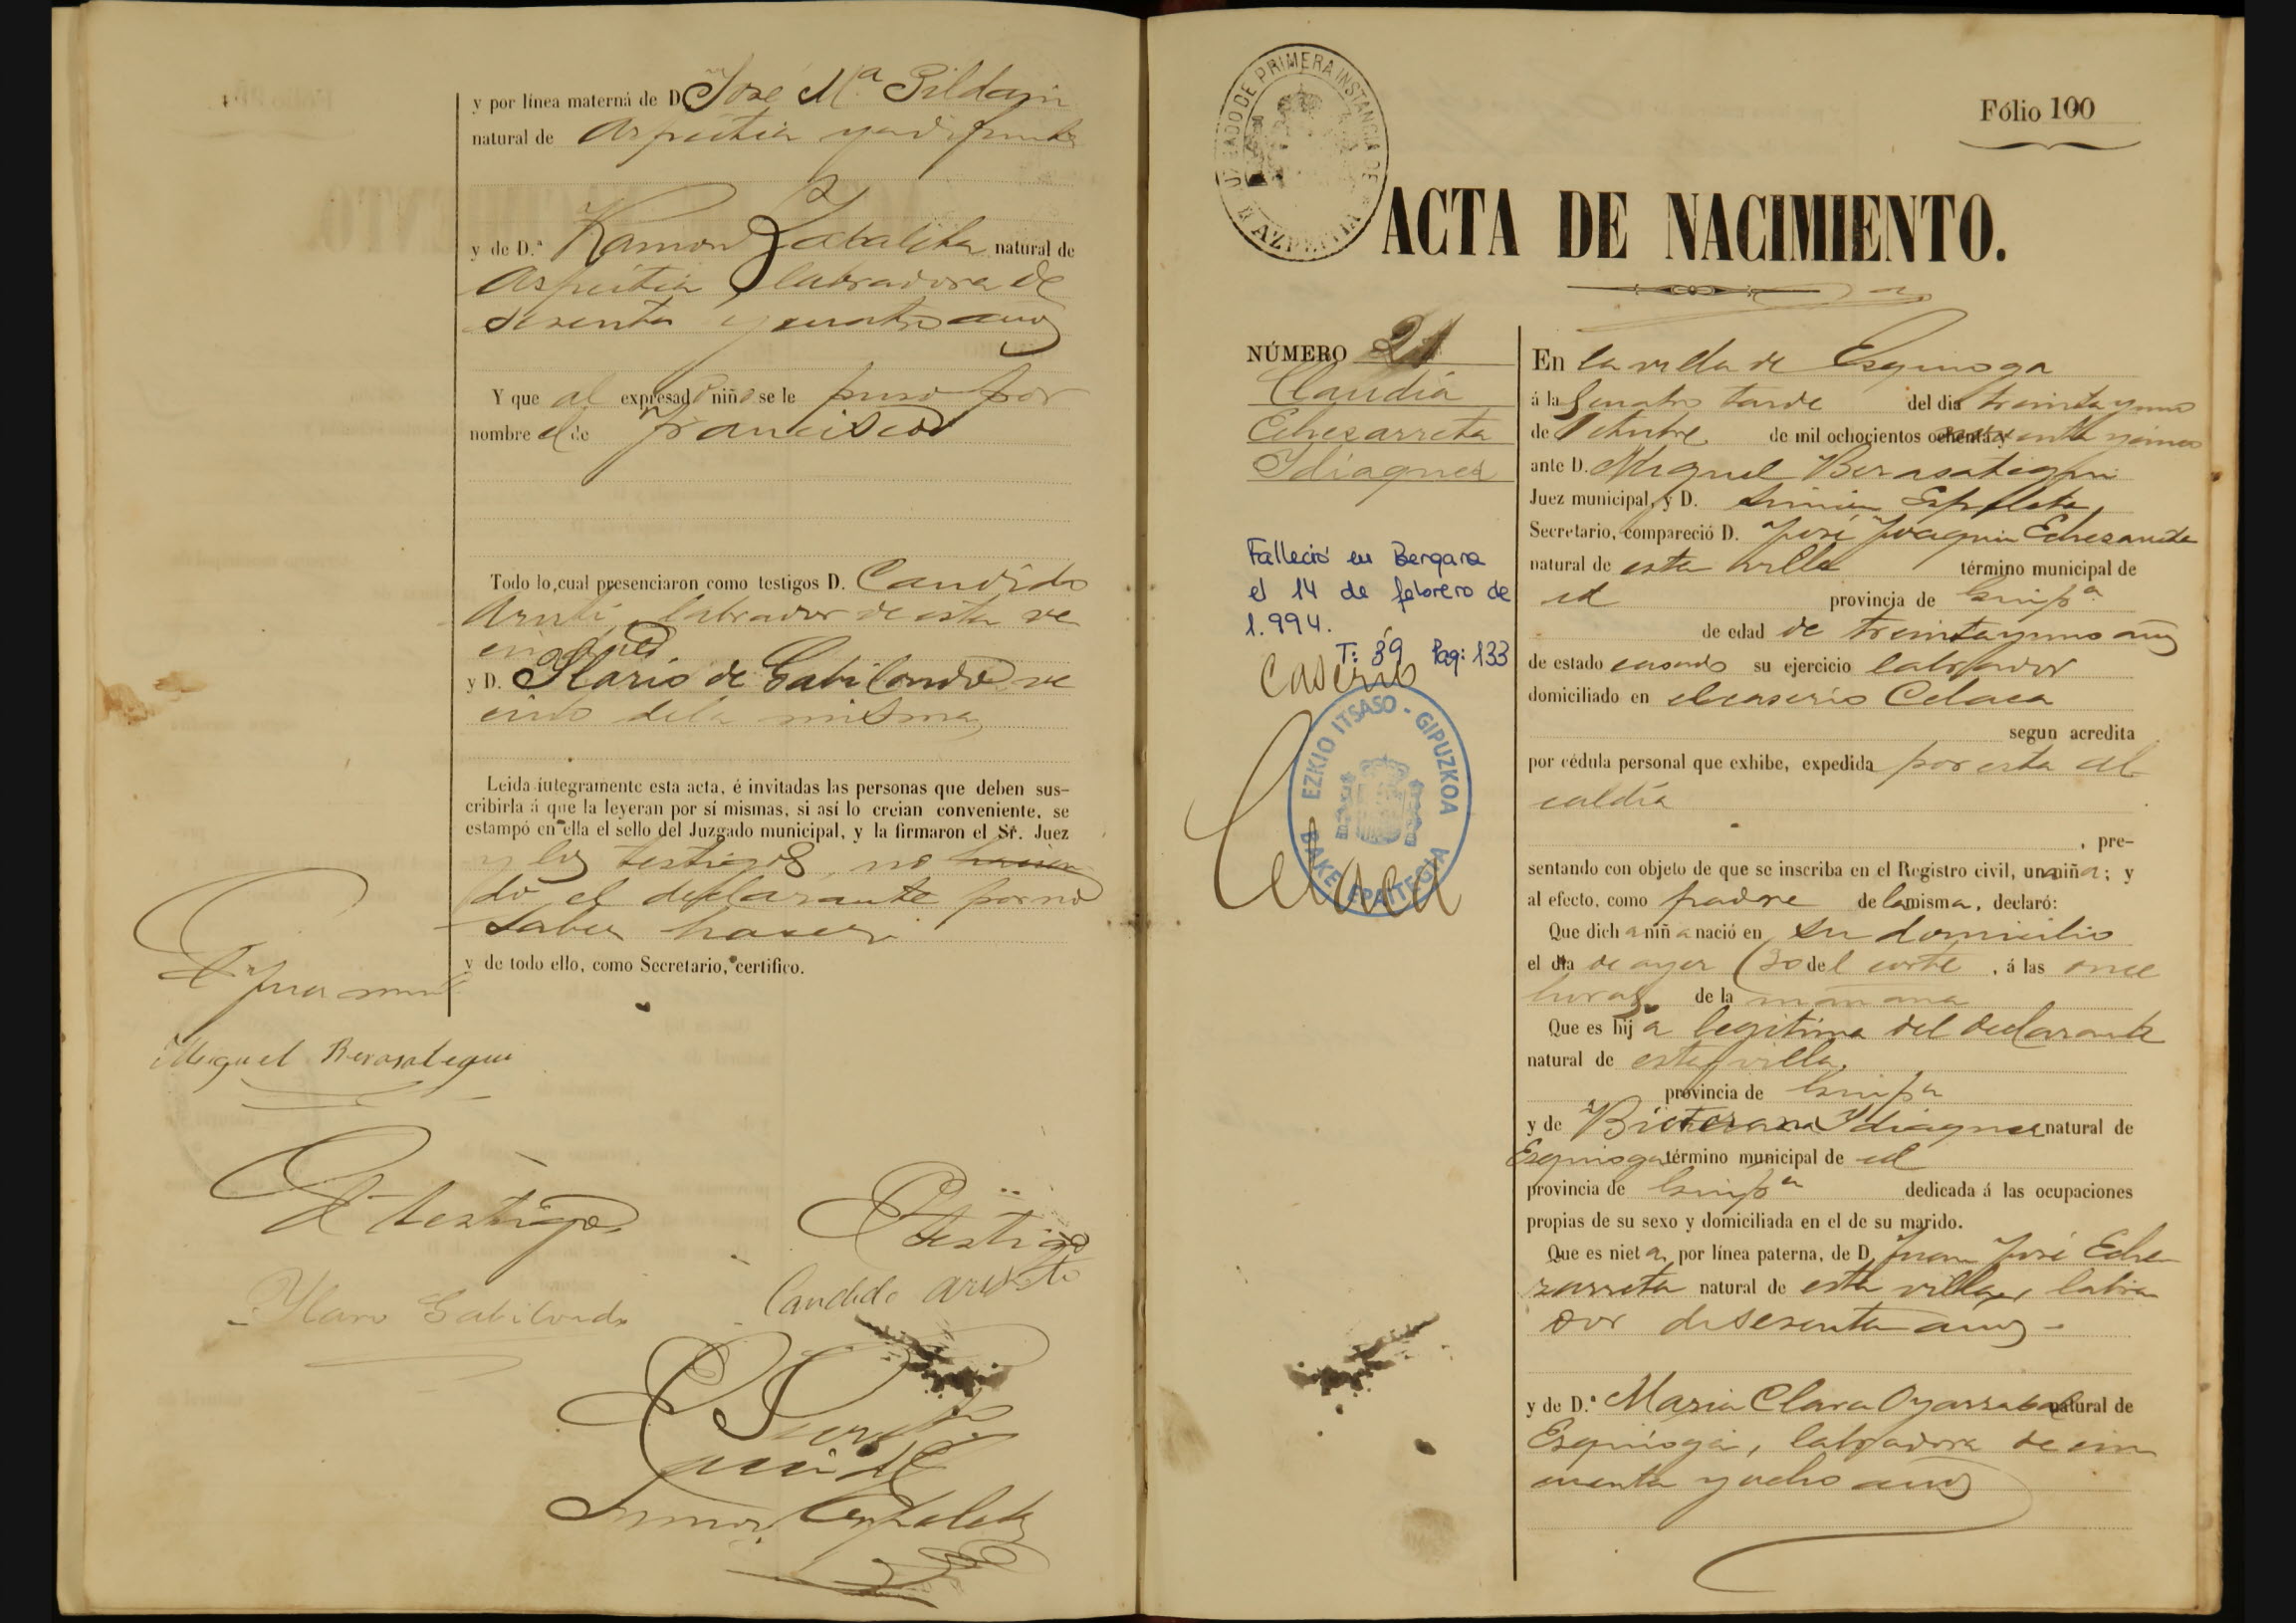 y por línea materna de D José Mª Gildain
natural de Aspeitia ya difunto
y de D.ª Ramona Zabaleta natural de
Aspeitia labradora de
sesenta y cuatro años
Y que al expresado niño se le puso por
nombre el de Francisco
Todo lo cual presenciaron como testigos D. Candido
labrador de esta ve
cindad
y D. Ilario de Gabilondo ve
cino de la misma
Leida íntegramente esta acta, é invitadas las personas que deben sus-
cribirla á que la leyeran por sí mismas, si así lo creian conveniente, se
estampó en ella el sello del Juzgado municipal, y la firmaron el Sr. Juez
y los testigos, no hacien
do el declarante por no
saber hacer
y de todo ello, como Secretario, certifico.
El Juez
Miguel Berasategui
El testigo
El testigo
Ilario Gabilondo
Candido
JUZGADO DE PRIMERA INSTANCIA DE AZPEITIA
Fólio 100
ACTA DE NACIMIENTO.
NÚMERO 21
Claudia
Echezarreta
Idiaquez
Falleció en Bergara
el 14 de febrero de
1.994.
T: 39 Pag: 133
Caserio
Celaca
EZKIO ITSASO - GIPUZKOA
BAKE EPAITEGIA
En la villa de Esquioga
á las cuatro tarde del dia treinta y uno
de Octubre de mil ochocientos ochenta y noventa y cinco
ante D. Miguel Berasategui
Juez municipal, y D. Simon Espeleta
Secretario, compareció D. José Joaquin Echezarreta
natural de esta villa término municipal de
id provincia de Guipª
de edad de treinta y uno años
de estado casado su ejercicio labrador
domiciliado en el caserio Celaca
segun acredita
por cédula personal que exhibe, expedida por esta al
caldía
, pre-
sentando con objeto de que se inscriba en el Registro civil, una niña; y
al efecto, como padre de la misma, declaró:
Que dicha niña nació en su domicilio
el dia de ayer (30 del corte, á las once
horas de la mañana
Que es hija legitima del declarante
natural de esta villa,
provincia de Guipª
y de Bictorana Idiaquez natural de
Esquioga término municipal de id
provincia de Guipª dedicada á las ocupaciones
propias de su sexo y domiciliada en el de su marido.
Que es nieta, por línea paterna, de D. Juan José Eche
zarreta natural de esta villa, labra
dor de sesenta años
y de D.ª Maria Clara Oyarzabal natural de
Esquioga, labradora de cin
cuenta y ocho años